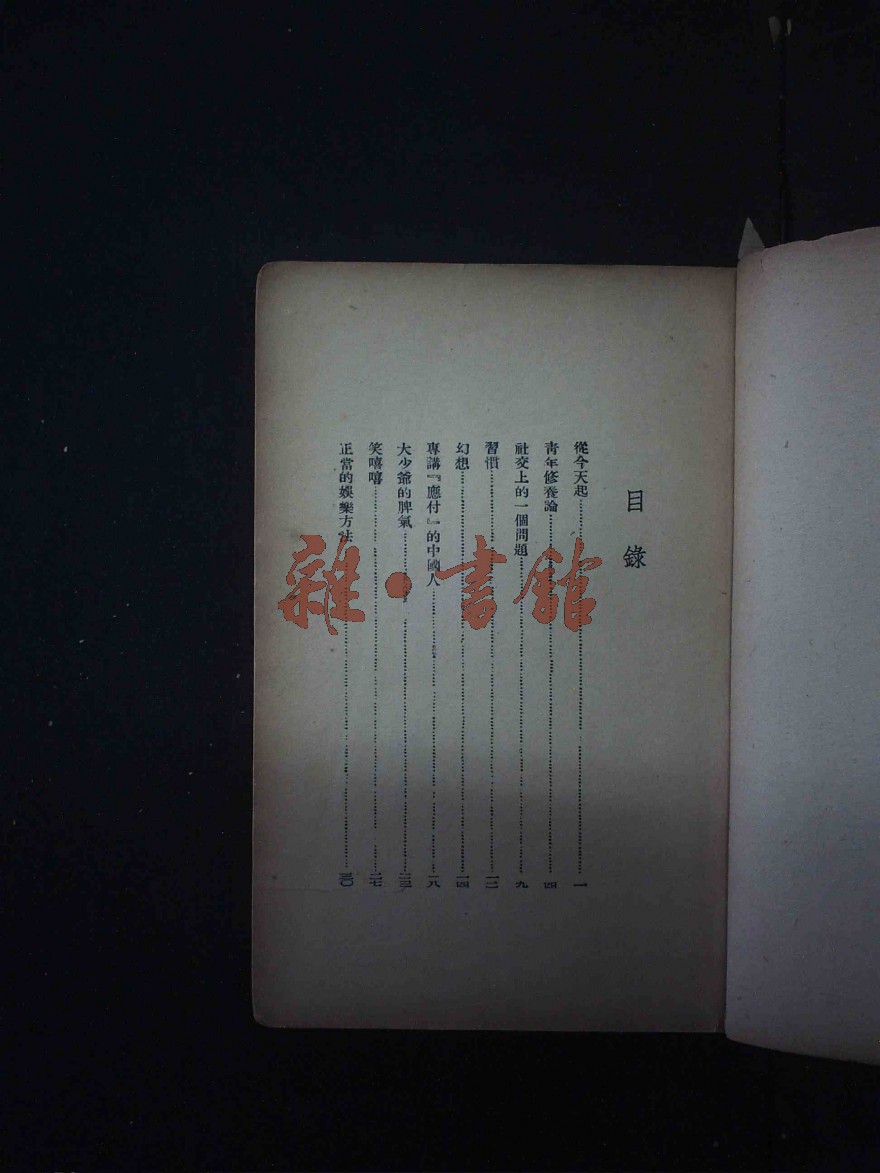 目錄
從今天起 一
青年修養論 四
社交上的一個問題 九
習慣 一二
幻想 一四
專講『應付』的中國人 一八
大少爺的脾氣 二三
笑嘻嘻 二七
正當的娛樂方法 三〇
雜·書館